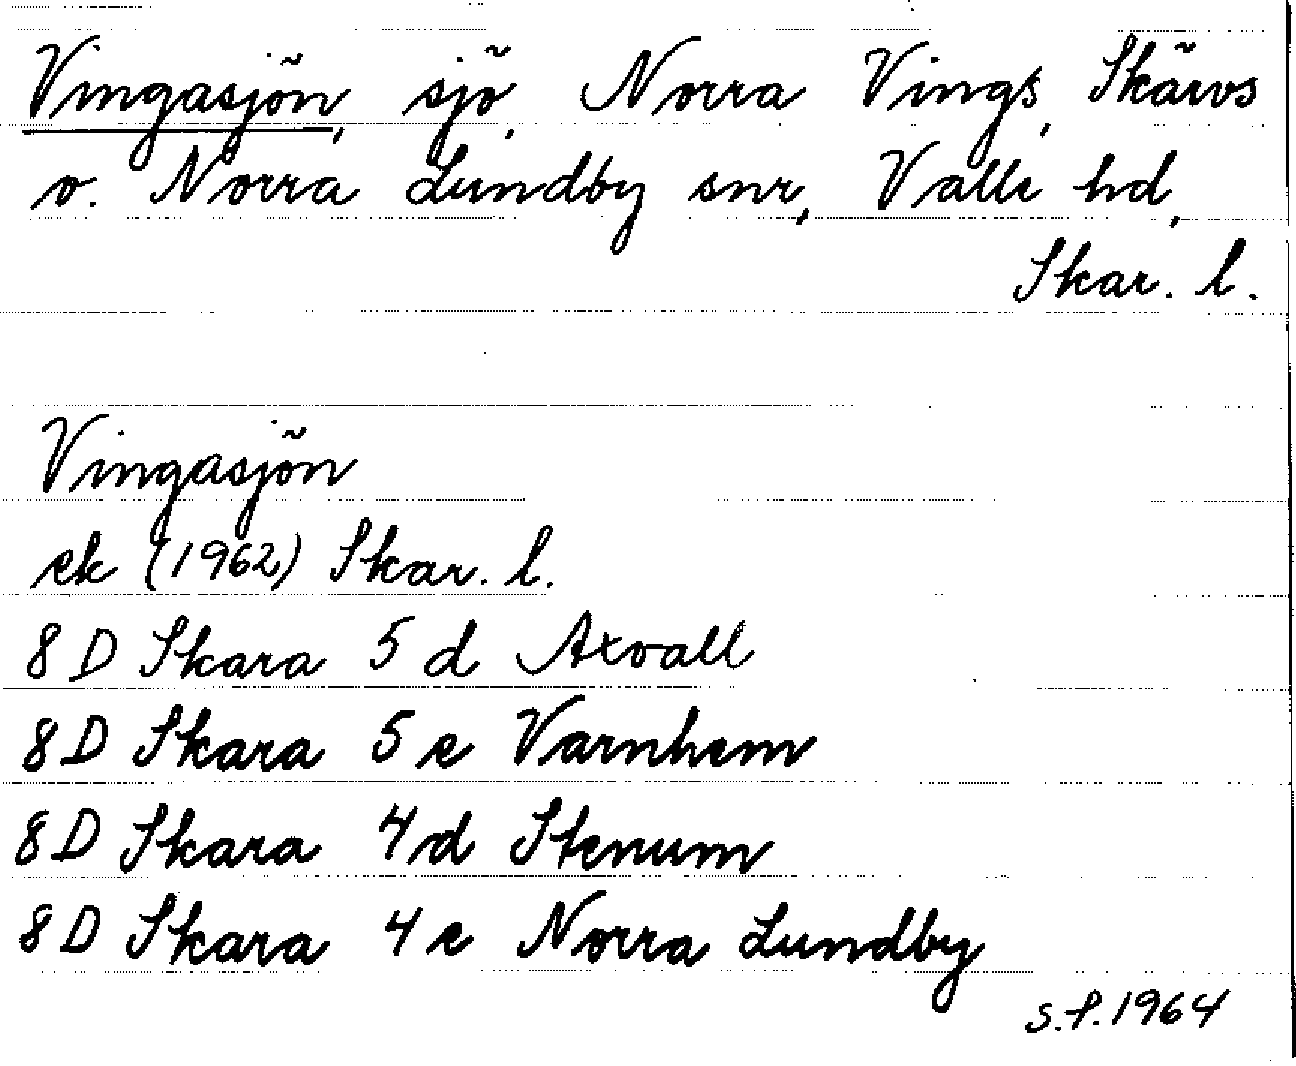 Vingasjön, sjö, Norra Vings, Skärvs
o. Norra Lundby snr, Valle hd,
Skar. l.
Vingasjön
ek (1962) Skar. l.
8 D Skara 5 d Axvall
8 D Skara 5 e Varnhem
8 D Skara 4 d Stenum
8 D Skara 4 e Norra Lundby
S.P. 1964